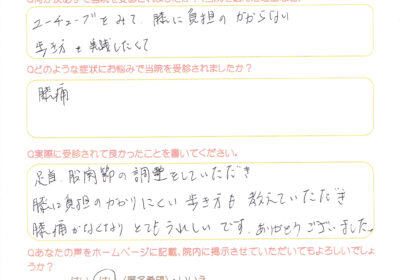 ユーチューブをみて、膝に負担のかからない
歩き方を意識したくて
Qどのような症状にお悩みで当院を受診されましたか？
膝痛
Q実際に受診されて良かったことを書いてください。
足首、股関節の調整をしていただき
膝に負担のかかりにくい歩き方も教えていただき
膝痛がなくなりとてもうれしいです。ありがとうございました。
Qあなたの声をホームページに記載、院内に掲示させていただいてもよろしいでしょ
うか？